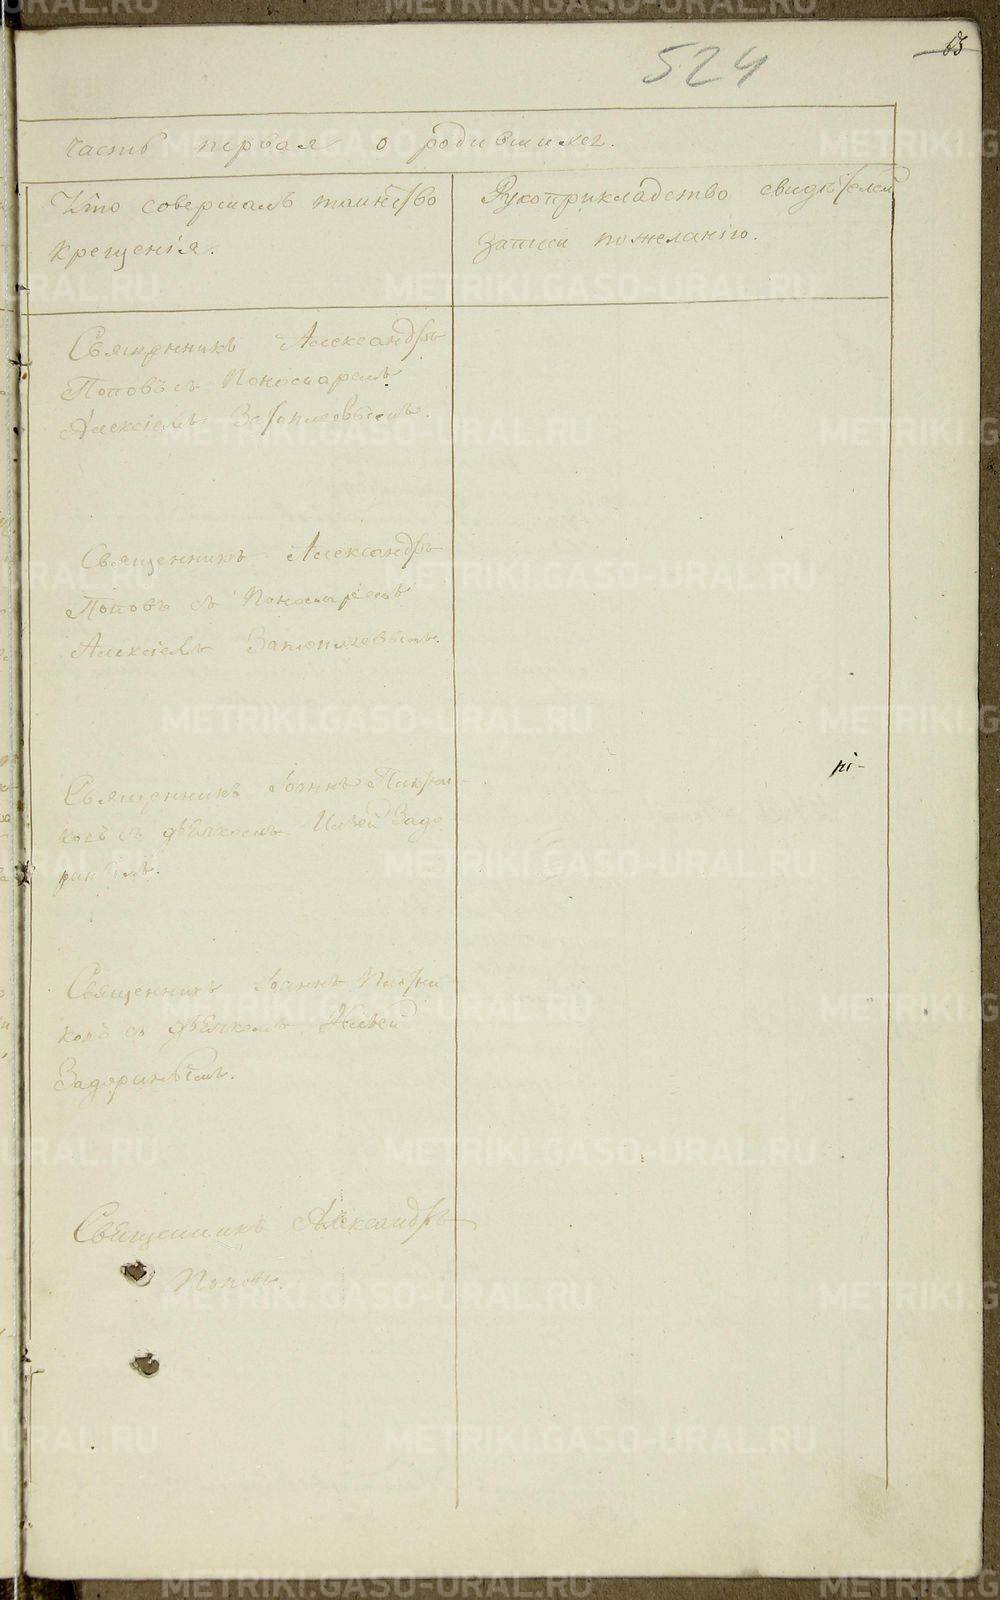 524
Часть первая о родившихся.
Кто совершалъ таинство
крещенія.
Рукоприкладство свидѣтелей
записи по желанію.
Священникъ Александръ
Поповъ съ Пономаремъ
Алексіемъ
Священникъ Александръ
Поповъ съ Пономаремъ
Алексіемъ
Священникъ Іоаннъ
ковъ съ дьячкомъ Задо
ринымъ.
Священникъ Іоаннъ
ковъ съ дьячкомъ
Задоринымъ.
Священникъ Александръ
Поповъ.
METRIKI.GASO-URAL.RU